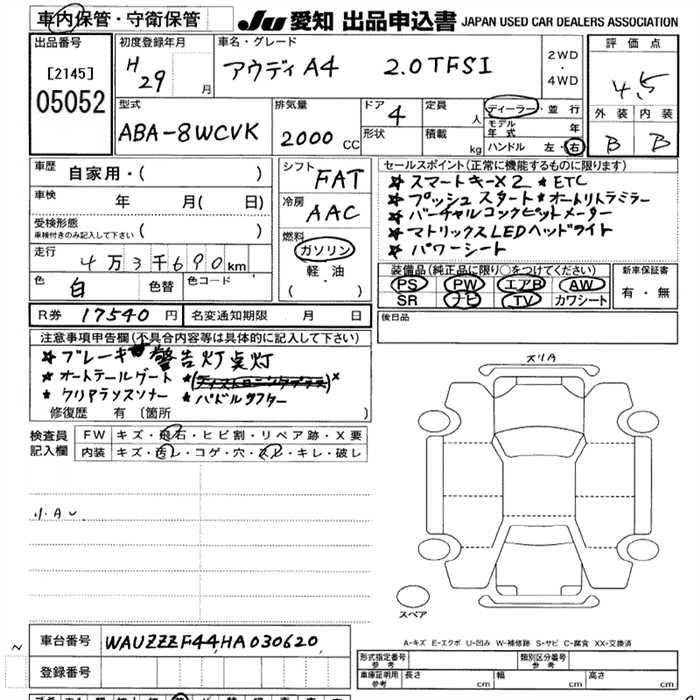 車内保管・守衛保管
JU 愛知 出品申込書 JAPAN USED CAR DEALERS ASSOCIATION
出品番号
[2145]
05052
初度登録年月
H 29 月
車名・グレード
アウディ A4 2.0TFSI
2WD
・
4WD
評価点
4.5
外装 内装
B B
型式
ABA-8WCVK
排気量
2000 CC
ドア
4
形状
定員
人
積載
kg
ディーラー・並行
モデル年式 年
ハンドル 左・右
車歴
自家用・( )
車検
年 月( 日)
受検形態
車検付きのみ記入して下さい ( )
走行
4万3千690km
色
白
色替
色コード
( )
シフト
FAT
冷房
AAC
燃料
ガソリン
軽油
( ・ )
セールスポイント(正常に機能するものに限ります)
★スマートキーX2 ★ETC
★プッシュスタート ★オートリトラミラー
★バーチャルコックピットメーター
★マトリックスLEDヘッドライト
★パワーシート
装備品(純正品に限り○をつけてください)
PS PW エアB AW
SR ナビ TV カワシート
新車保証書
有・無
R券 17540円
名変通知期限 月 日
後日品
注意事項申告欄(不具合内容等は具体的に記入して下さい)
★ブレーキ 警告灯点灯
★オートテールゲート
★クリアランスソナー ★パドルシフター
修復歴 有 〔箇所 〕
検査員記入欄
FW キズ・飛石・ヒビ割・リペア跡・X要
内装 キズ・汚レ・コゲ・穴・スレ・キレ・破レ
小A
スペア
A-キズ E-エクボ U-凹み W-補修跡 S-サビ C-腐食 XX-交換済
車台番号
WAUZZZF44HA030620
登録番号
形式指定番号
参考
類別区分番号
参考
車庫証明用
参考
長さ cm
幅 cm
高さ cm